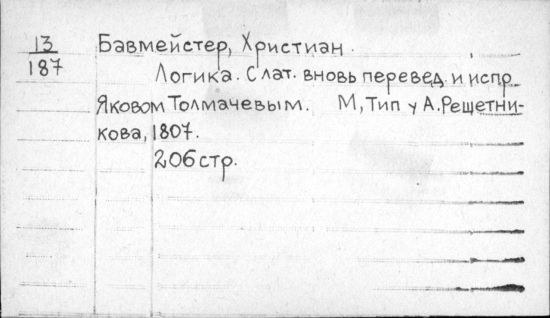 13
187
Бавмейстер, Христиан.
Логика. С лат. вновь перевед. и испр
Яковом Толмачевым. М, Тип у А. Решетни-
кова, 1807.
206 стр.